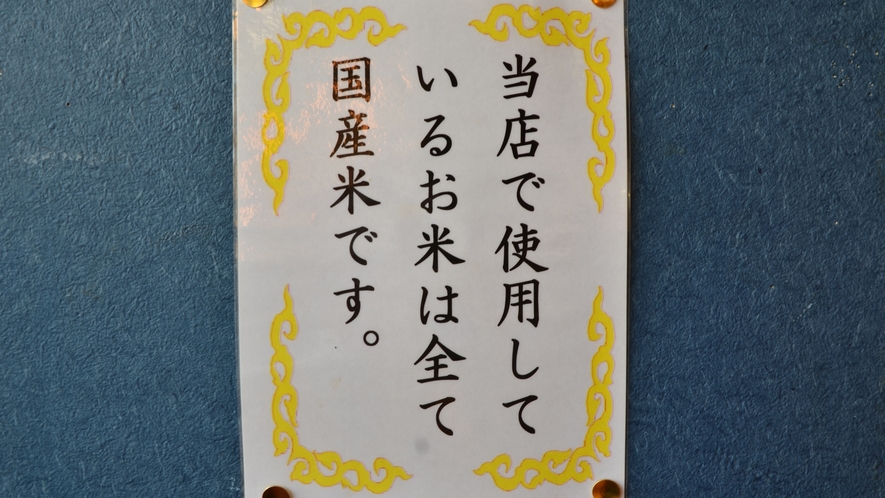 当店で使用して
いるお米は全て
国産米です。